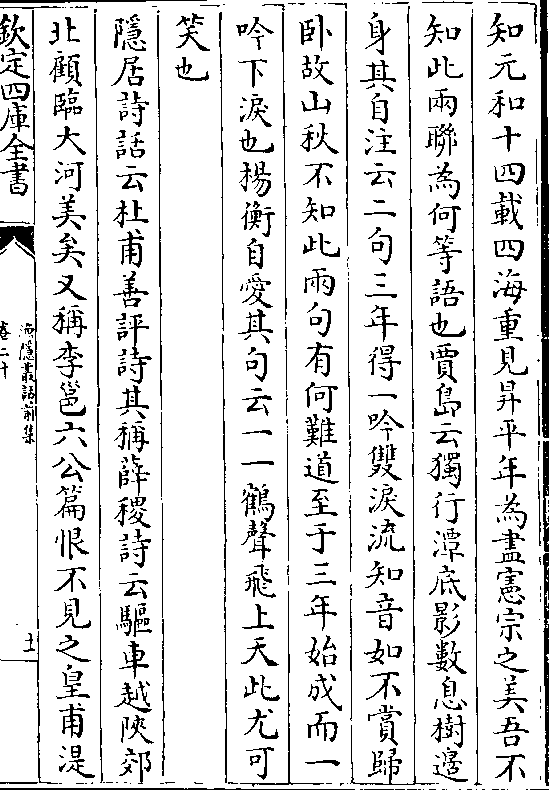 知元和十四載四海重見昇平年為盡憲宗之美吾不
知此兩聯為何等語也賈島云獨行潭底影數息樹邊
身其自注云二句三年得一吟雙淚流知音如不賞歸
卧故山秋不知此兩句有何難道至于三年始成而一
吟下淚也楊衡自愛其句云一一鶴聲飛上天此尤可
笑也
隱居詩話云杜甫善評詩其稱薛稷詩云驅車越陜郊
北顧臨大河美矣又稱李邕六公篇恨不見之皇甫湜
欽定四庫全書
漁隱叢話前集
卷二十
十一